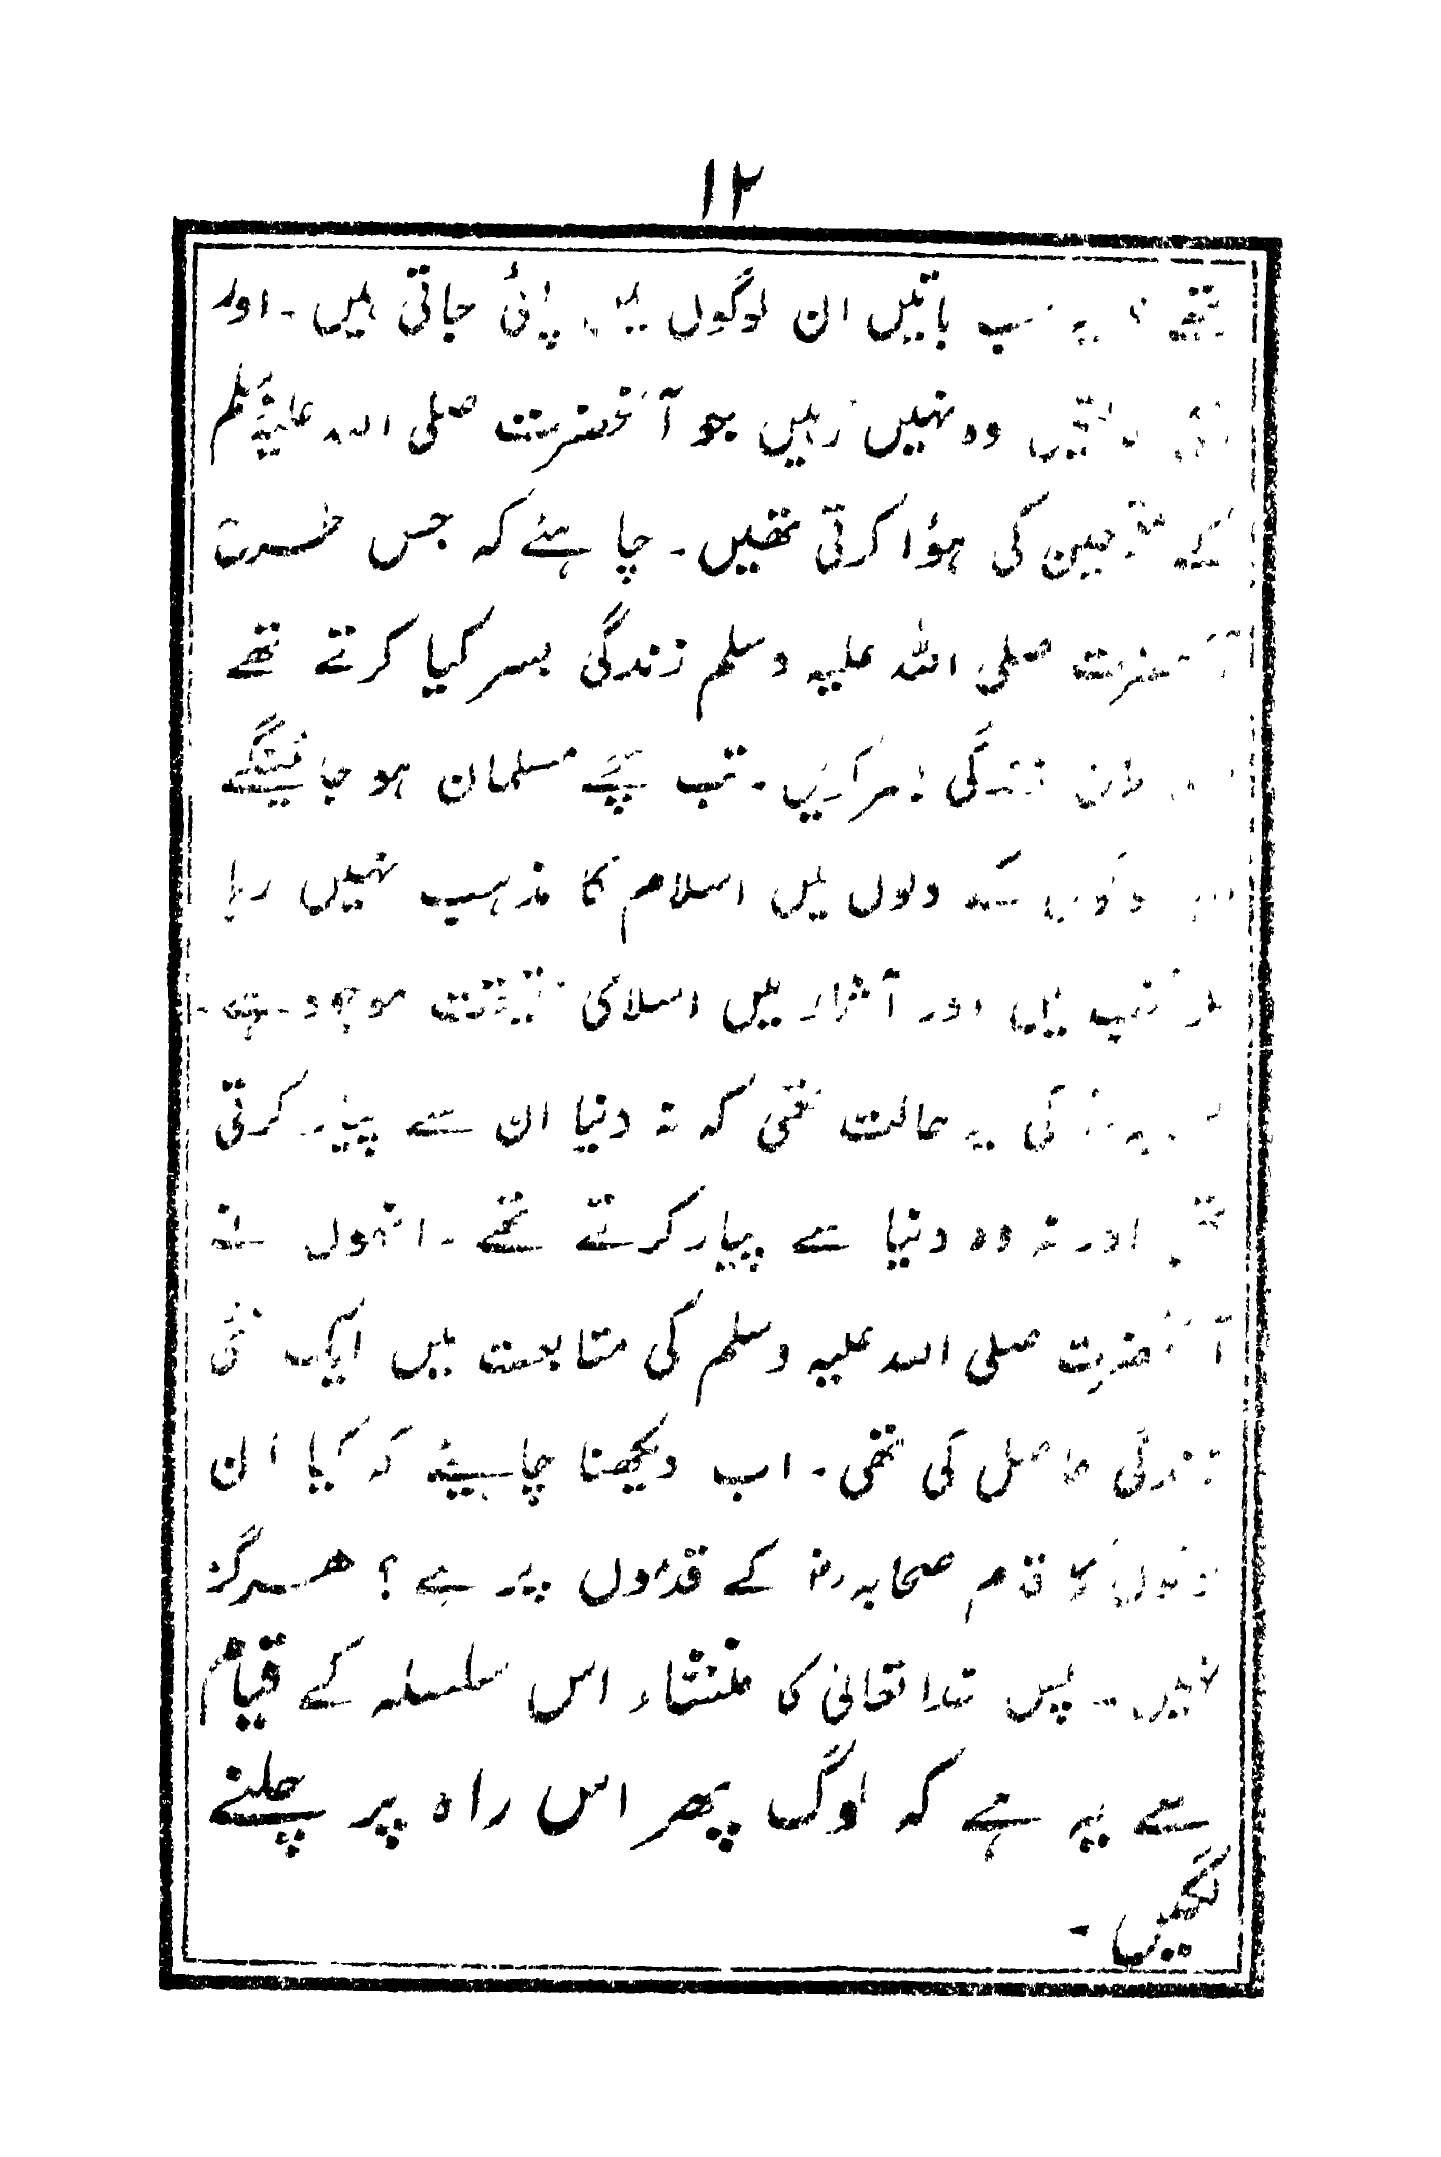 ۱۲
تھے؟ یہ سب باتیں ان لوگوں میں پائی جاتی ہیں۔ اور
وہ نہیں رہیں جو آنحضرت صلی اللہ علیہ وسلم
کے کی ہؤا کرتی تھیں۔ چاہئے کہ جس طرح
آنحضرت صلی اللہ علیہ وسلم زندگی بسر کیا کرتے تھے
زندگی بسر کریں۔ تب سچے مسلمان ہو جائینگے
لوگوں کے دلوں میں اسلام کا مذہب نہیں رہا
کتب میں اور آثار میں اسلام کی حقیقت موجود ہے۔
صحابہ رضہ کی یہ حالت تھی کہ نہ دنیا ان سے پیار کرتی
تھی اور نہ وہ دنیا سے پیار کرتے تھے۔ انہوں نے
آنحضرت صلی اللہ علیہ وسلم کی متابعت میں ایک نئی
زندگی حاصل کی تھی۔ اب دیکھنا چاہیئے کہ کیا ان
لوگوں کا قدم صحابہ رضہ کے قدموں پر ہے؟ ہرگز
نہیں۔ پس خدا تعالیٰ کا منشاء اس سلسلہ کے قیام
سے یہ ہے کہ لوگ پھر اس راہ پر چلنے
لگیں۔